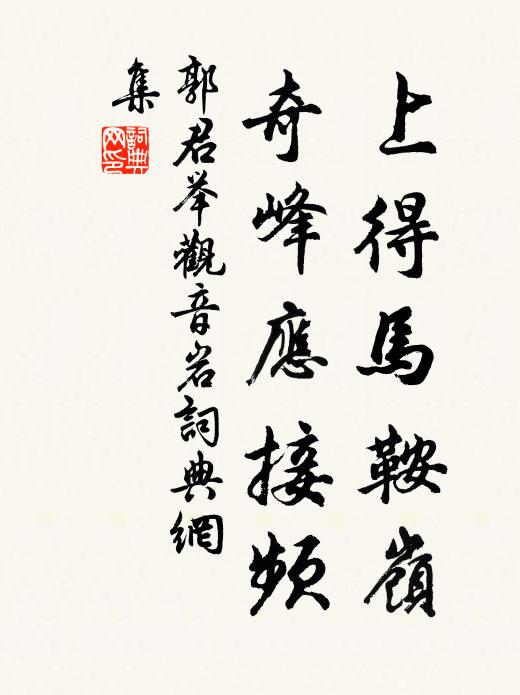 上得馬鞍嶺
奇峰應接頻
郭君举觀音岩詞典網
集
詞典網印